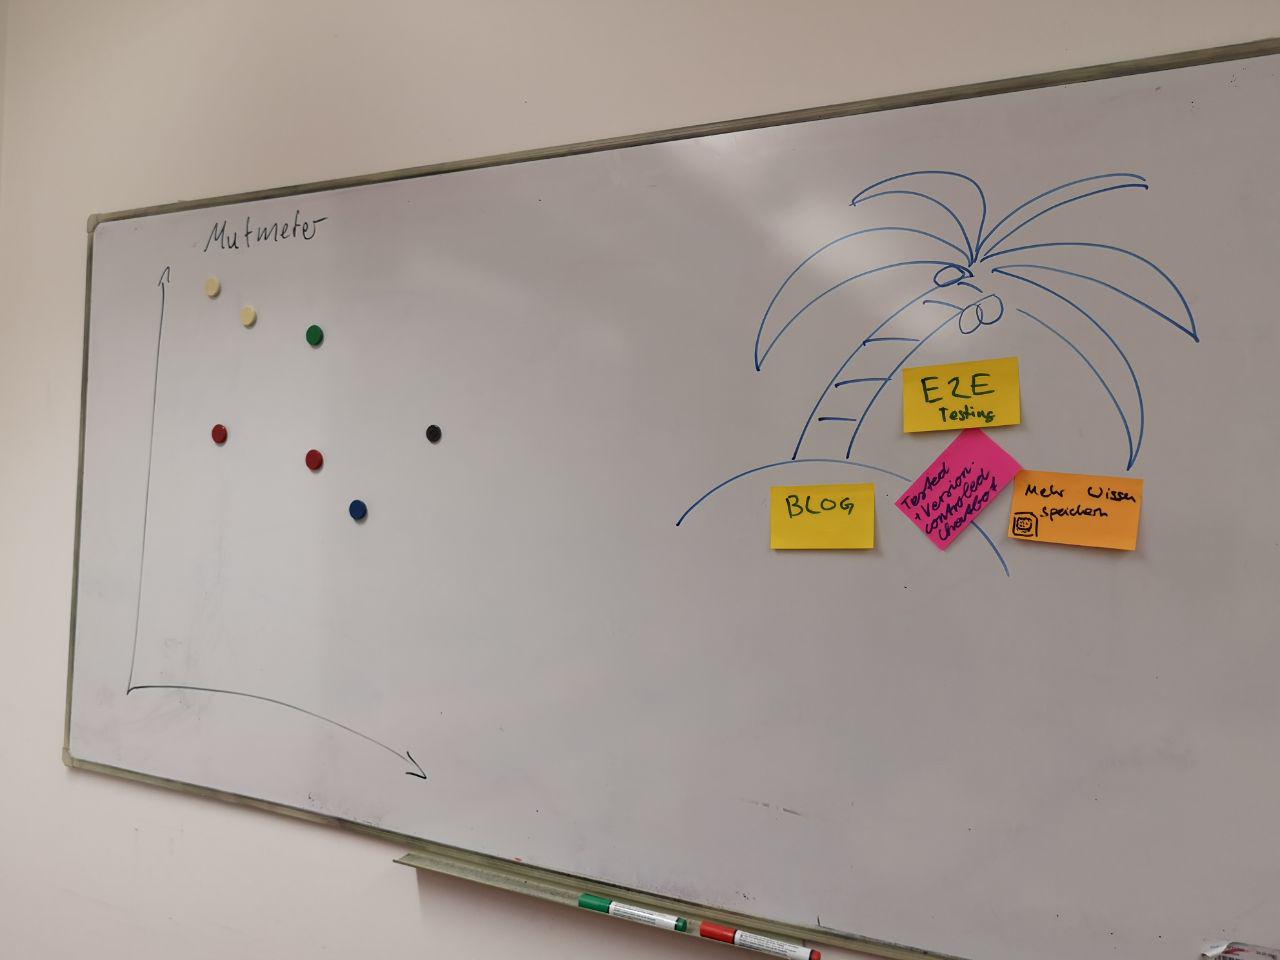 Mutmeter
E2E
Testing
BLOG
Tested
+ Version-
controled
Chatbot
Mehr Wissen
speichern